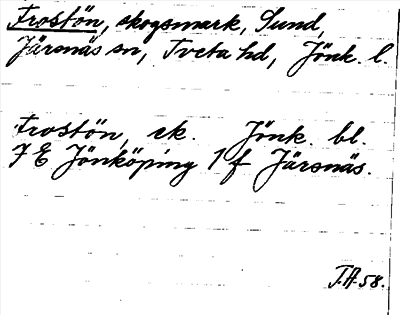 Frostön, skogsmark, Sund,
Järsnäs sn, Tveta hd, Jönk. l.
Frostön, ek. Jönk. bl.
7 E Jönköping 1 f Järsnäs.
J.A. 58.